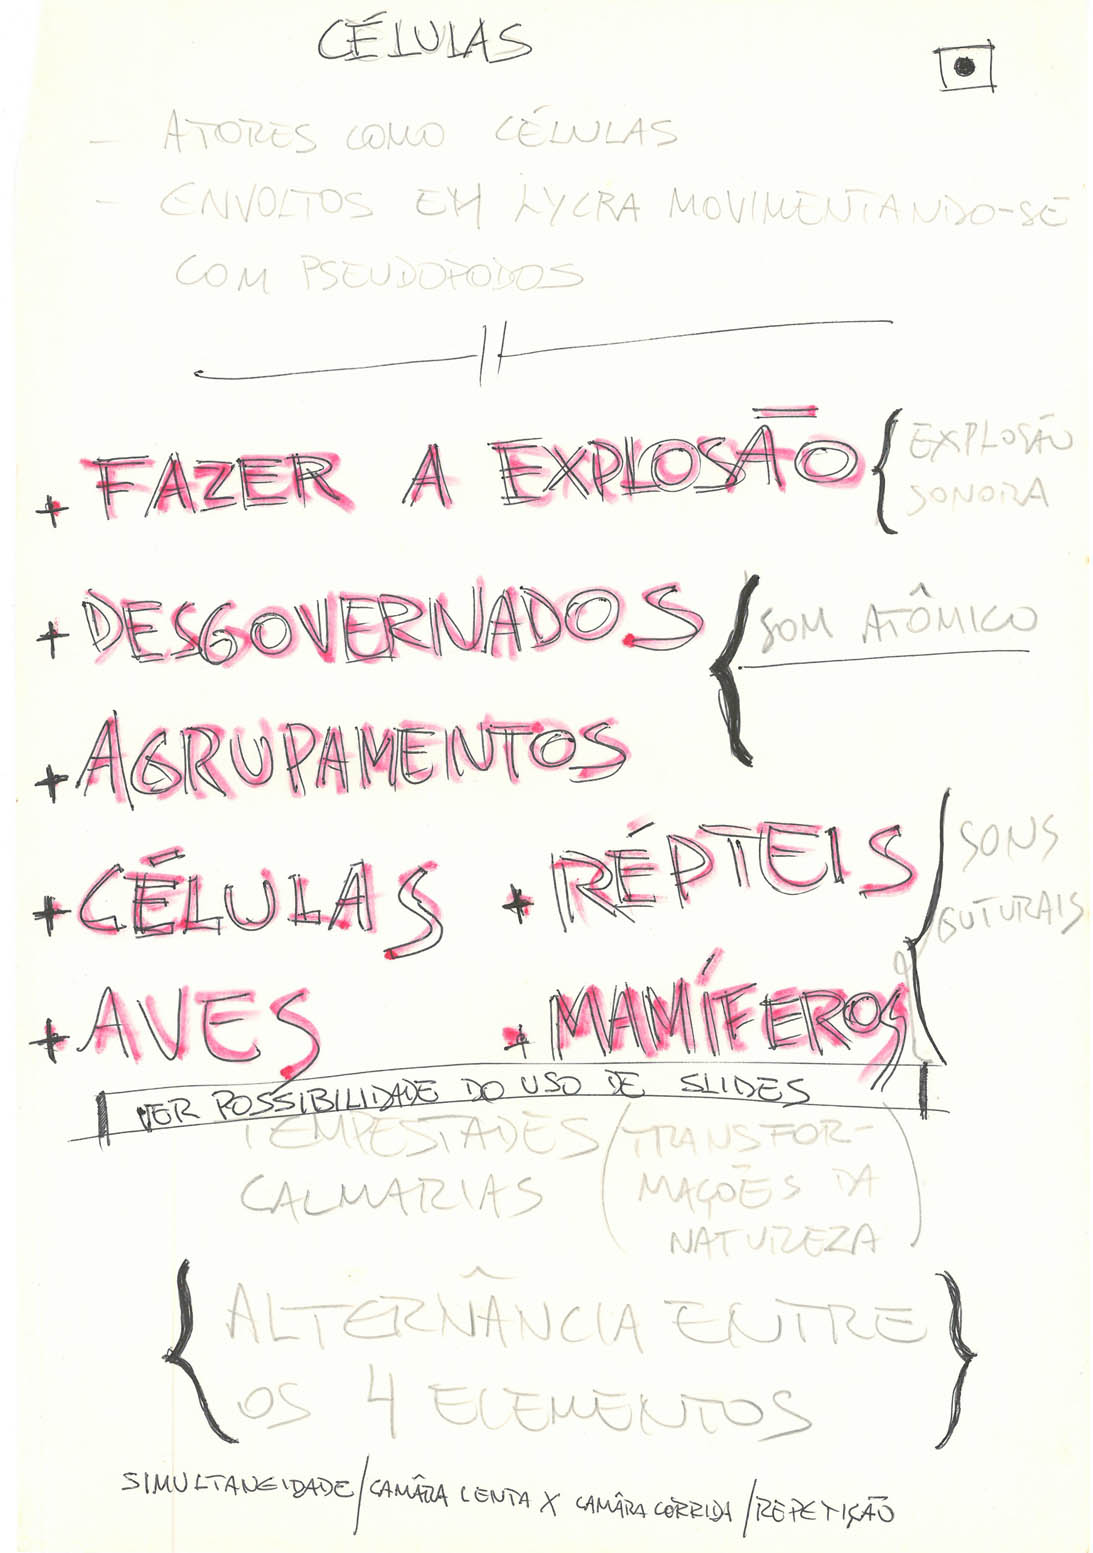 CÉLULAS
- ATORES COMO CÉLULAS
- ENVOLTOS EM LYCRA MOVIMENTANDO-SE
COM PSEUDOPODOS
+ FAZER A EXPLOSÃO { EXPLOSÃO
SONORA
+ DESGOVERNADOS { SOM ATÔMICO
+ AGRUPAMENTOS
+ CÉLULAS + RÉPTEIS { SONS
GUTURAIS
+ AVES + MAMÍFEROS
VER POSSIBILIDADE DO USO DE SLIDES
TEMPESTADES (TRANSFOR-
CALMARIAS MAÇÕES DA
NATUREZA)
{ ALTERNÂNCIA ENTRE
OS 4 ELEMENTOS }
SIMULTANEIDADE/CAMÂRA LENTA X CAMÂRA CORRIDA/REPETIÇÃO